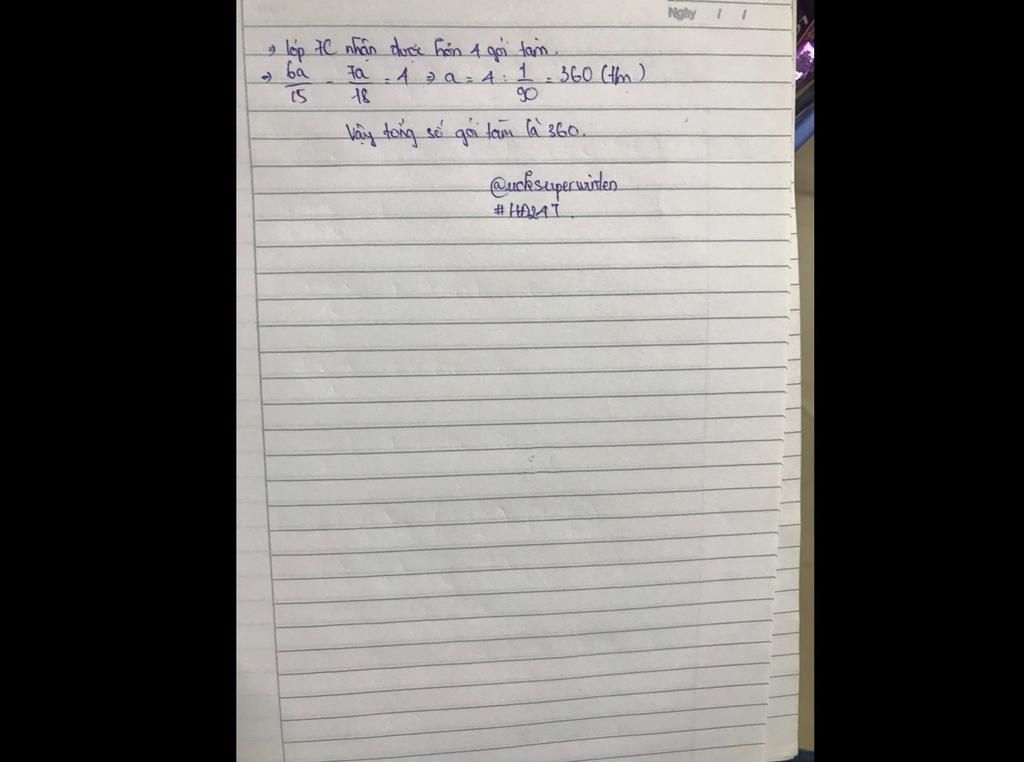 Ngày / /
⇒ lớp 7C nhận được hơn 4 gói tăm.
⇒ 6a/15 - 7a/18 = 4 ⇒ a = 4 : 1/90 = 360 (tm)
Vậy tổng số gói tăm là 360.
#HĐ247.